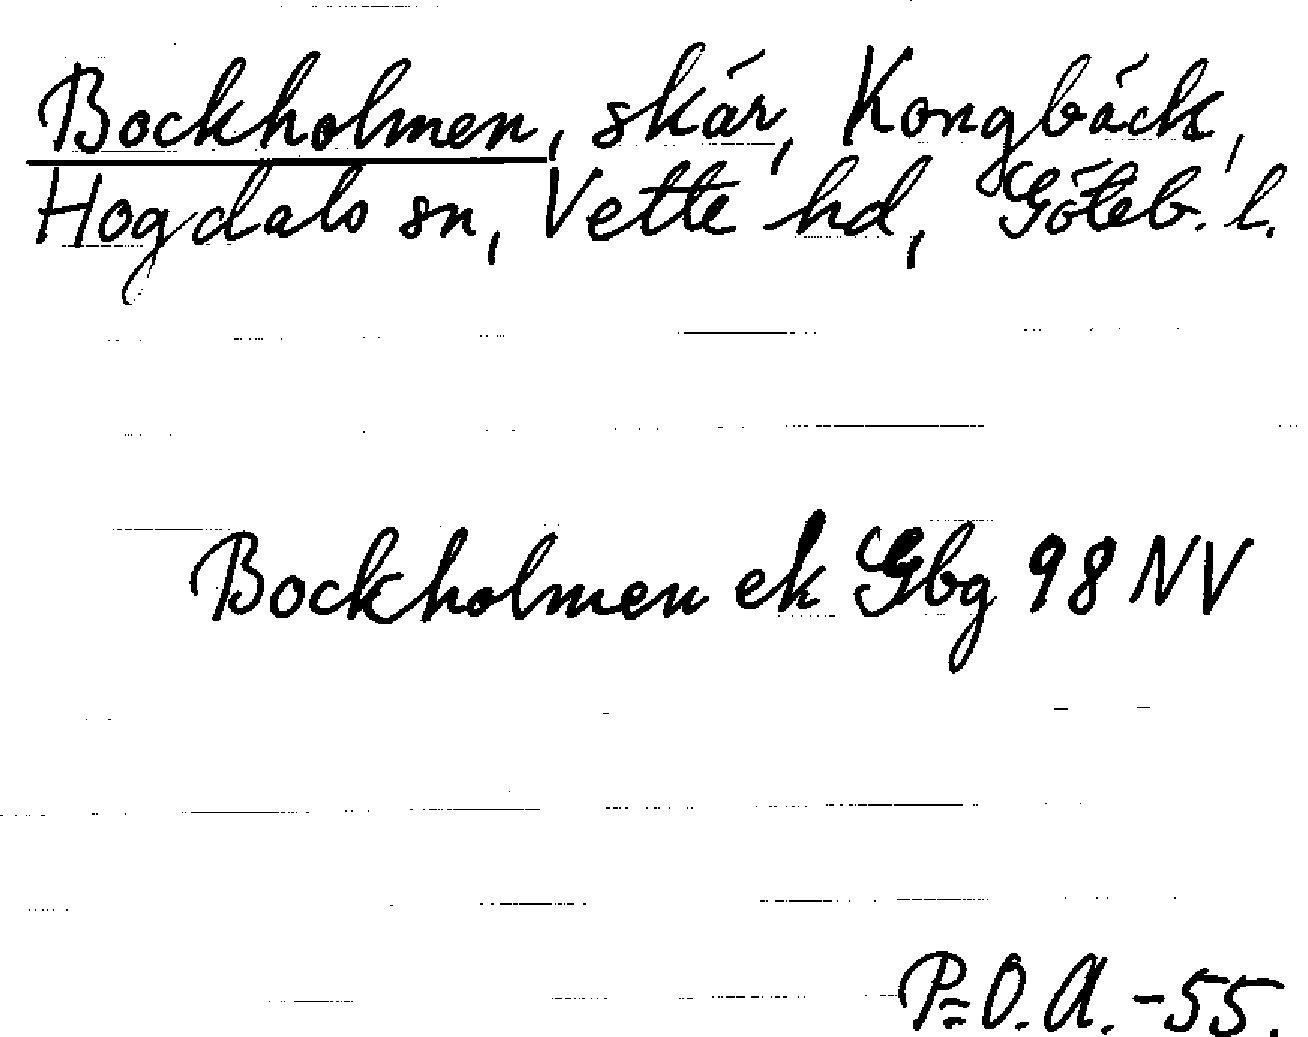 Bockholmen, skär, Kongbäck,
Hogdals sn, Vette hd, Göteb. l.
Bockholmen ek Gbg 98 NV
P=O. A. -55.